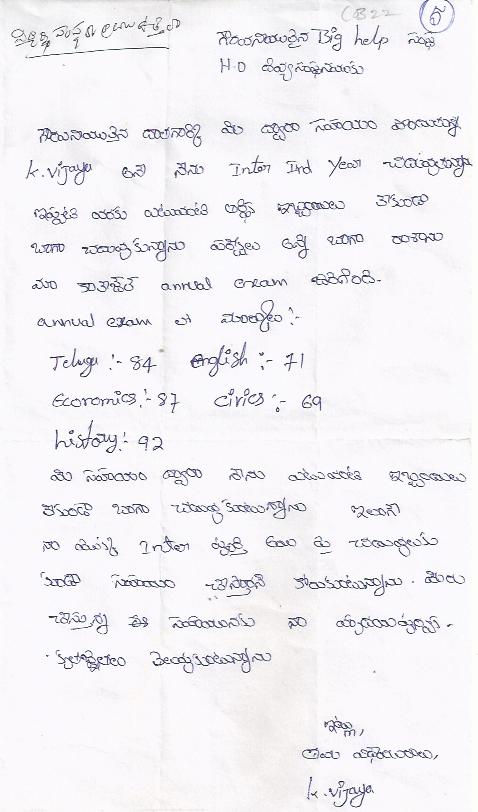 CB22
5
గౌరవనీయులైన Big help సంస్థ
H.O
గౌరవనీయులైన దాతగారికి మీ ద్వారా సహాయం పొందుచున్న
K. Vijaya అనే నేను Inter IInd Year చదువుతున్నాను
ఇప్పటి వరకు ఎటువంటి ఇబ్బందులు లేకుండా
బాగా చదువుకున్నాను పరీక్షలు అన్నీ బాగా రాశాను
మా కాలేజీలో annual exam జరిగింది.
annual exam లో మార్కులు :-
Telugu :- 84 english :- 71
Economics :- 87 civics :- 69
history :- 92
మీ సహాయం ద్వారా నేను ఎటువంటి ఇబ్బందులు
లేకుండా బాగా చదువుకుంటున్నాను ఇలాగే
నా యొక్క Inter పూర్తి అయి పై చదువులకు
కూడా సహాయం చేస్తారని కోరుకుంటున్నాను. మీరు
చేస్తున్న ఈ సహాయానికు నా హృదయపూర్వక
కృతజ్ఞతలు తెలుపుకుంటున్నాను
ఇట్లు,
తమ విధేయురాలు,
K. Vijaya